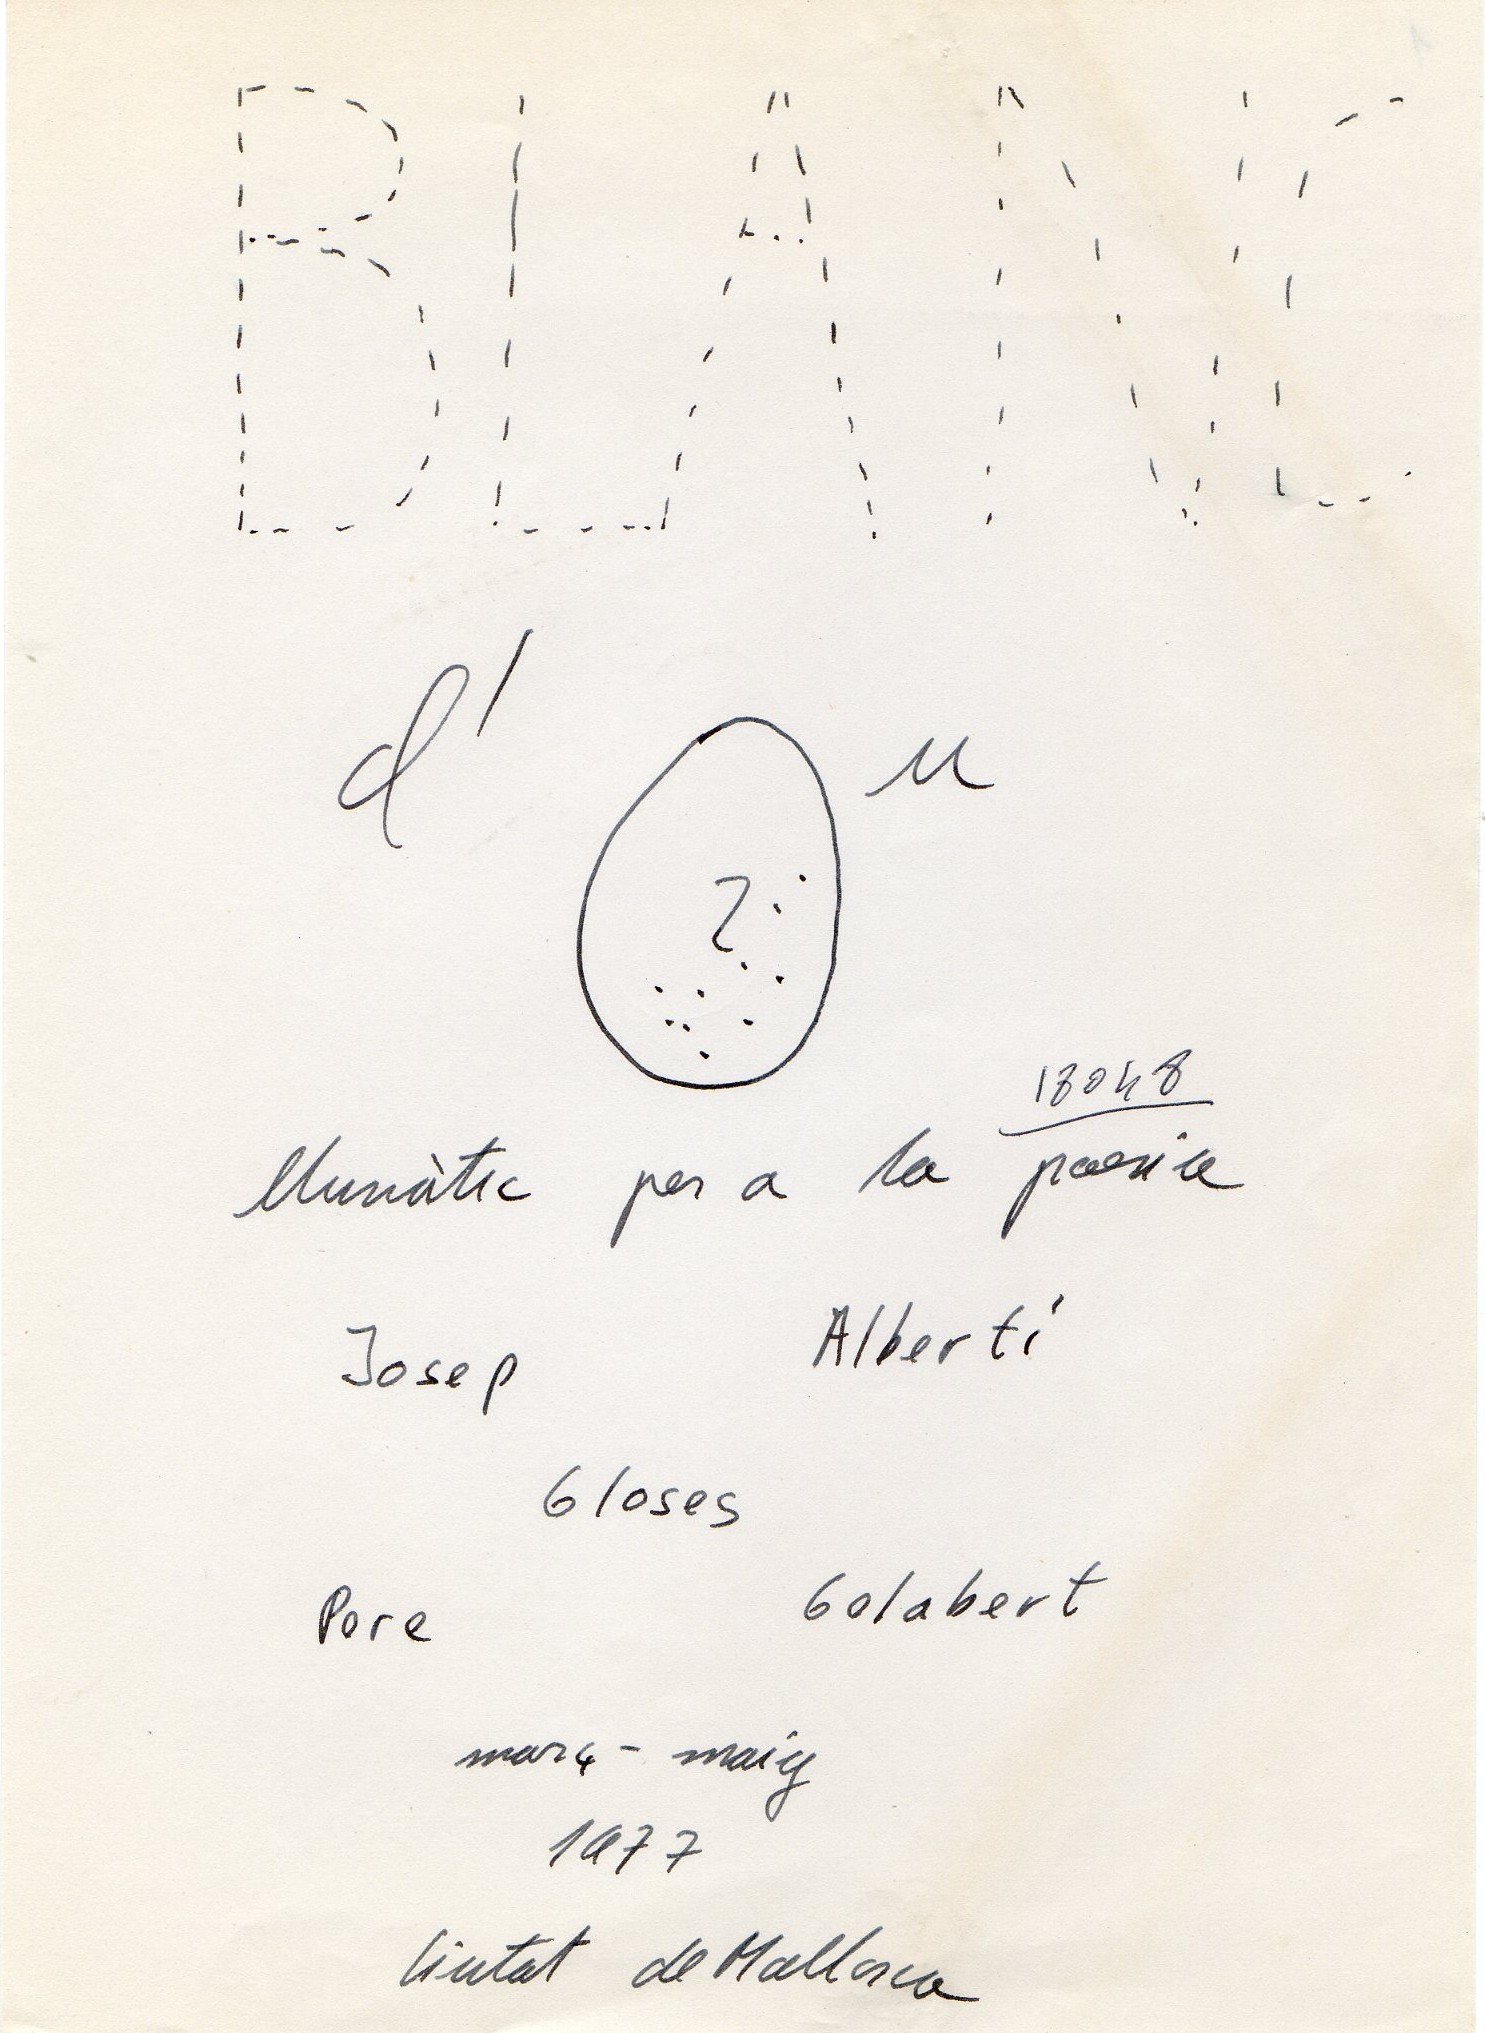 BLANC
d'Ou
18048
llunàtic per a la poesia
Josep Albertí
Gloses
Pere Galabert
març - maig
1977
Ciutat de Mallorca